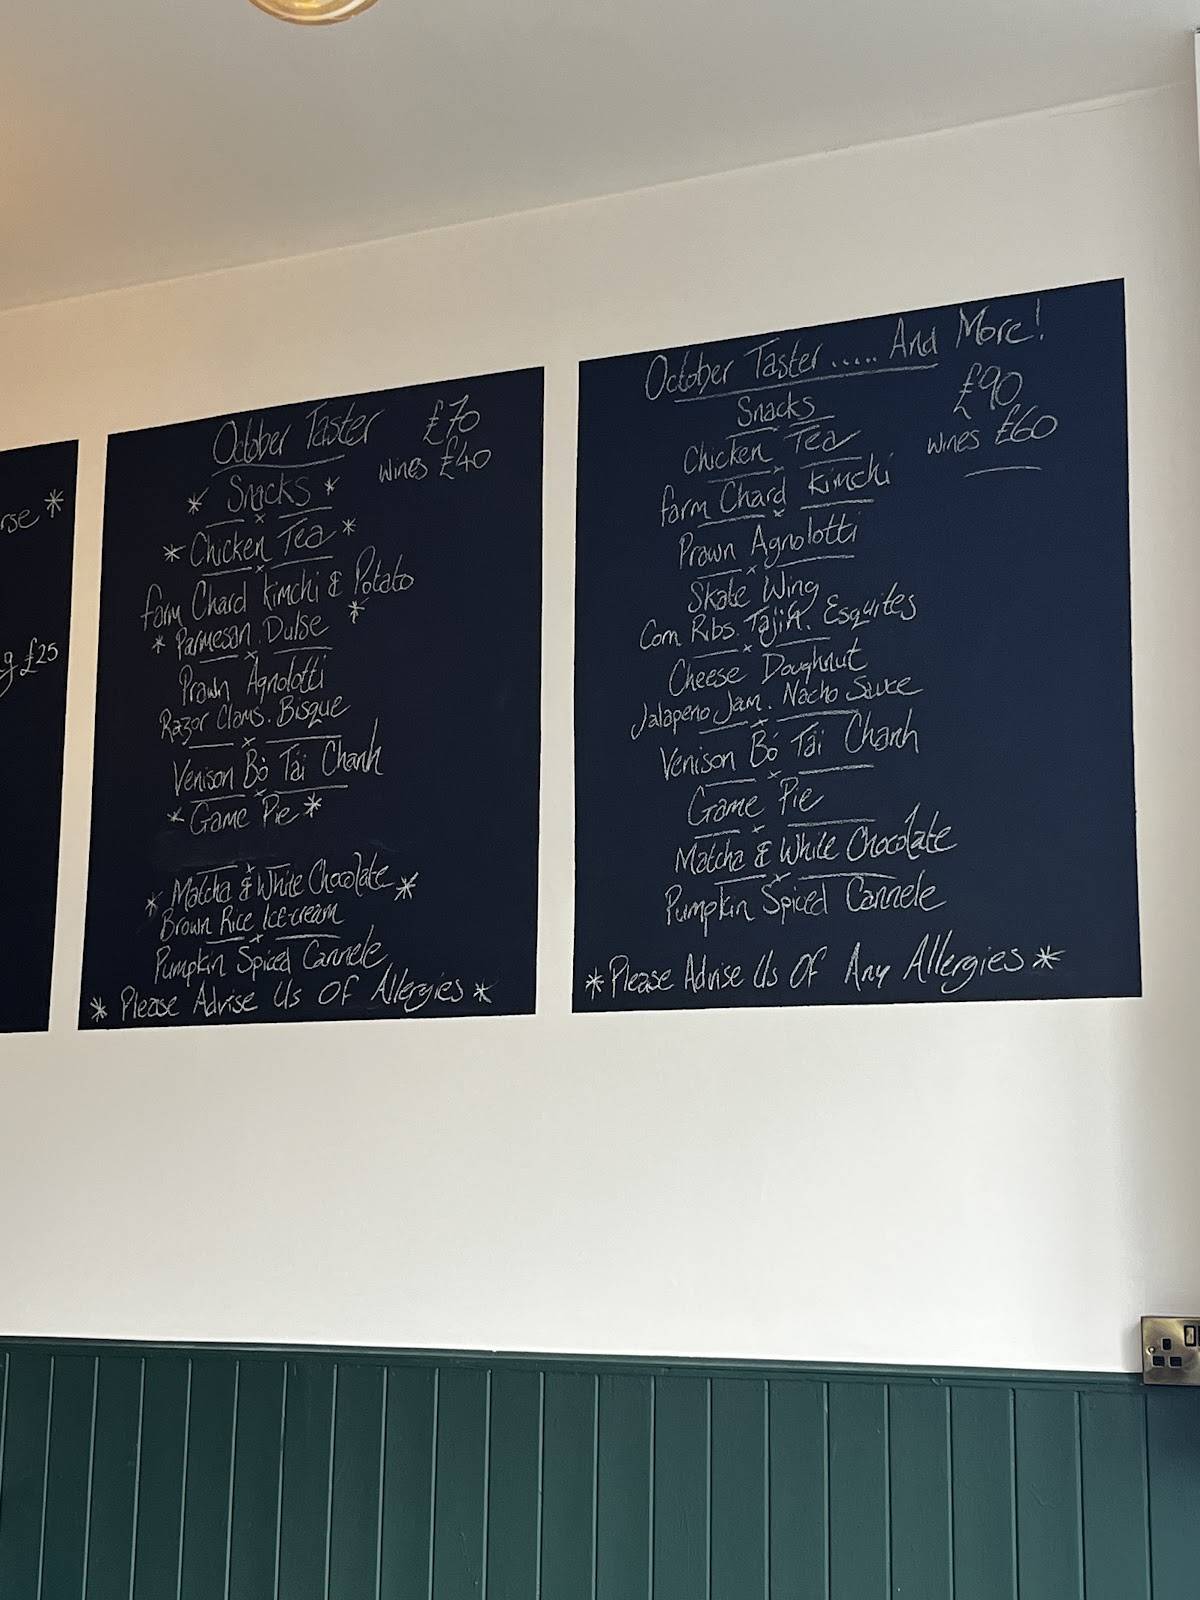 rse *
g £25
October Taster £70
wines £40
* Snacks *
* Chicken Tea *
Farm Chard Kimchi & Potato
* Parmesan. Dulse *
Prawn Agnolotti
Razor Clams. Bisque
Venison Bò Tái Chanh
* Game Pie *
* Matcha & White Chocolate *
Brown Rice Ice-cream
Pumpkin Spiced Cannele
* Please Advise Us Of Allergies *
October Taster ..... And More!
£90
Snacks
wines £60
Chicken Tea
Farm Chard Kimchi
Prawn Agnolotti
Skate Wing
Corn Ribs. Tajin. Esquites
Cheese Doughnut
Jalapeno Jam. Nacho Sauce
Venison Bó Tái Chanh
Game Pie
Matcha & White Chocolate
Pumpkin Spiced Cannele
* Please Advise Us Of Any Allergies *